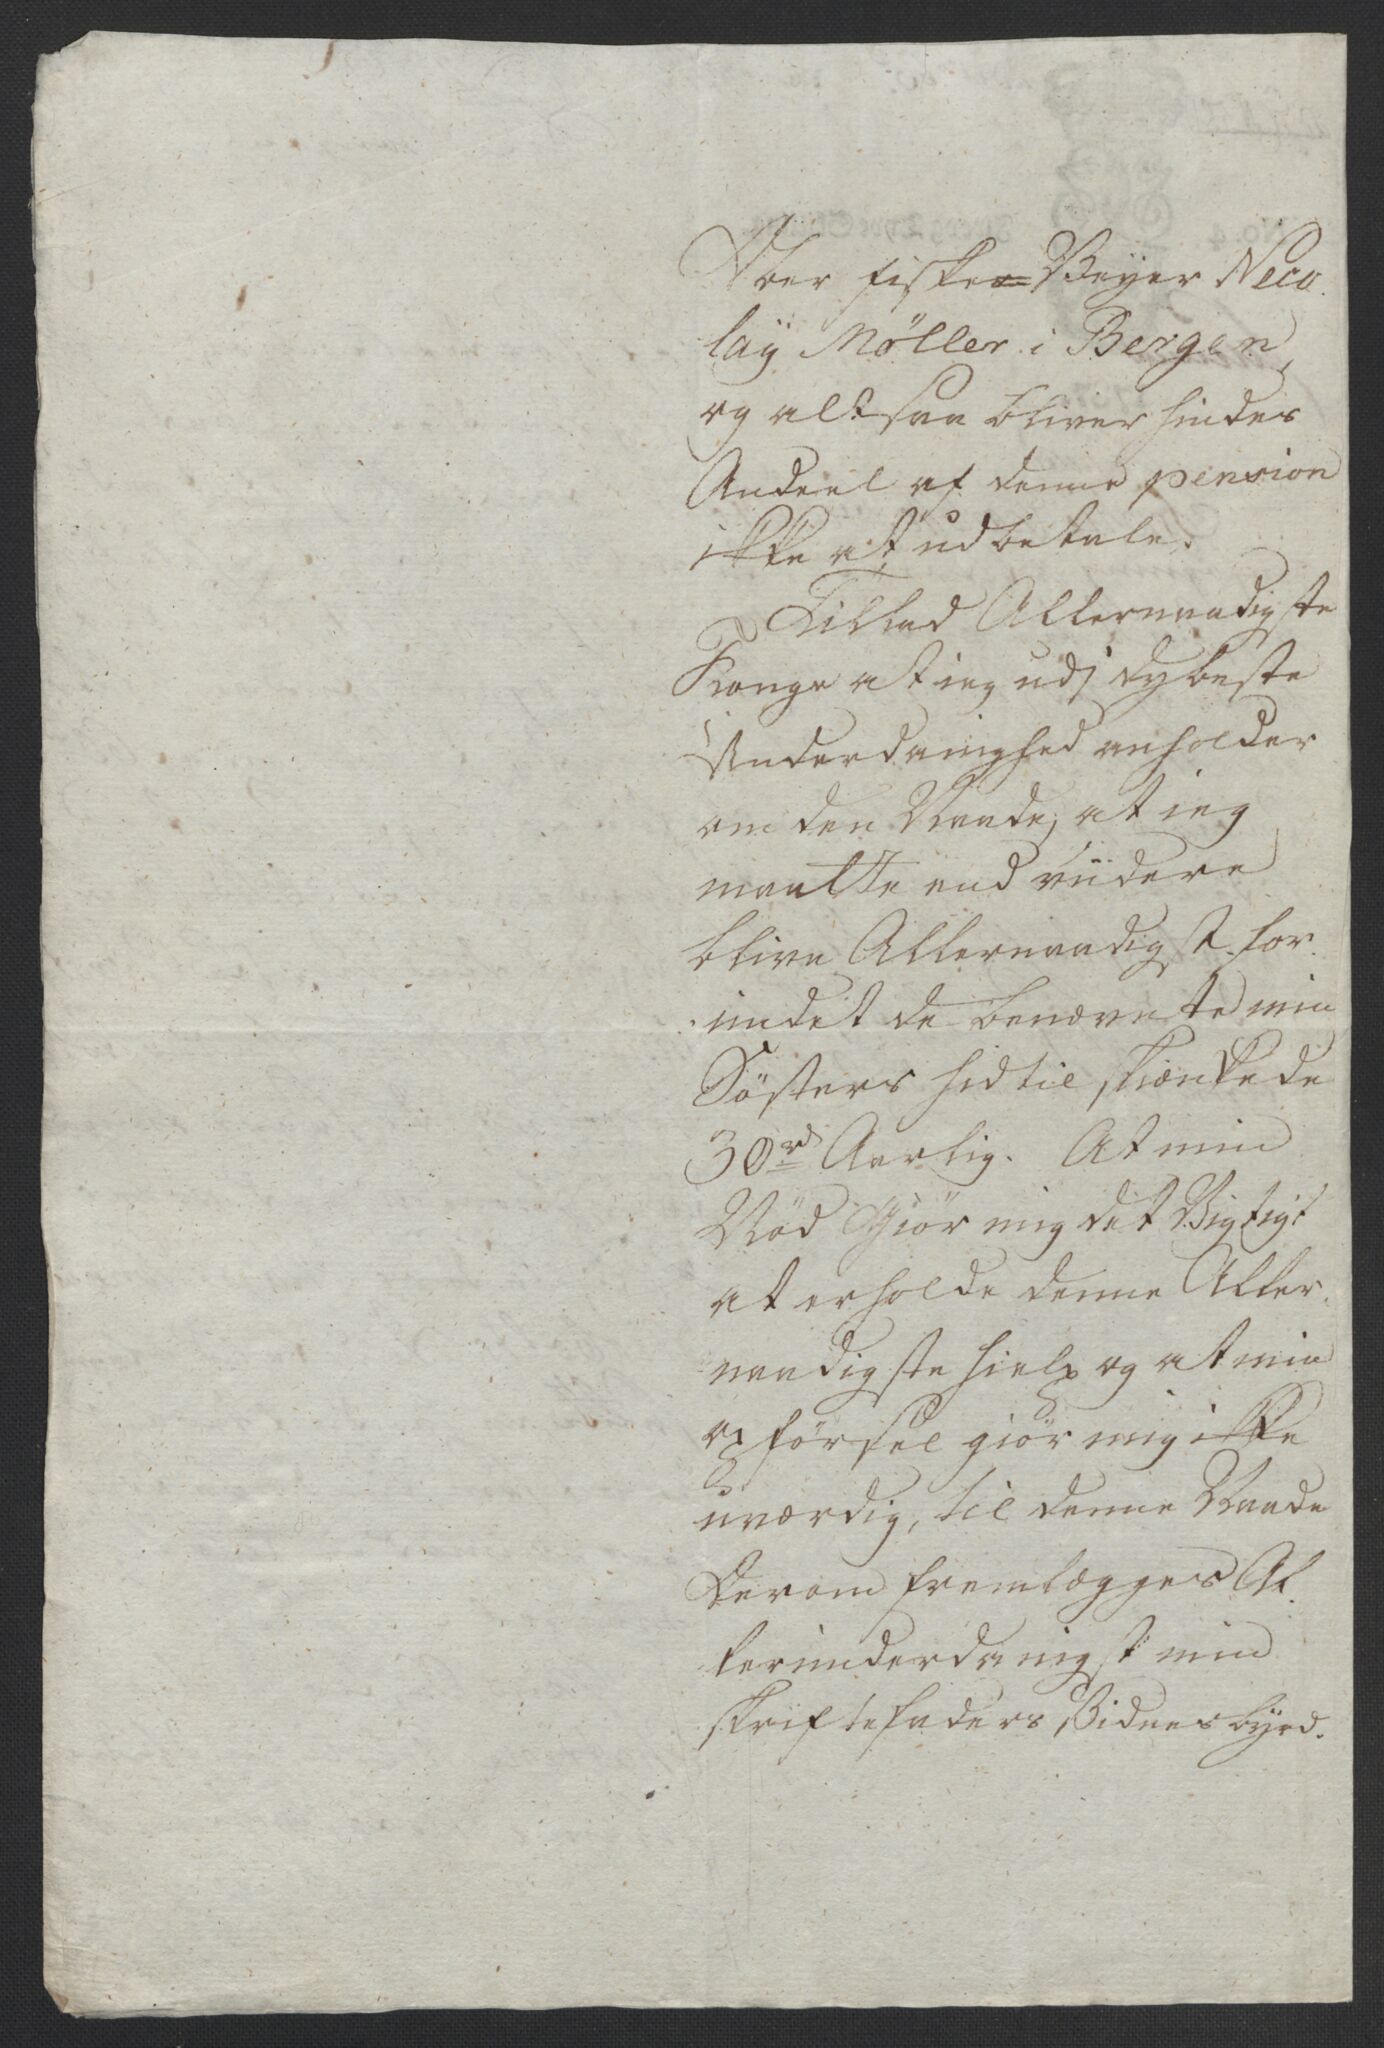 Over fisker Beyer Neco-
lay Møller i Bergen,
og altsaa bliver hindes
Andeel af denne pension
ikke at udbetale.
Tillad Allernaadigste
Konge at ieg udj dybeste
Underdanighed anholder
om den Naade, at ieg
maatte end viidere
blive Allernaadigst for-
undet de benævnte min
Søsters hid til skienkede
30 rd Aarlig. At min
Nød Giør mig det Vigtigt
at erholde denne Aller-
naadigste hielp og at min
opførsel giør mig ikke
uværdig, til denne Naade
Derom fremlægges Al-
lerunderdanigst min
skriftefaders Vidnesbyrd.